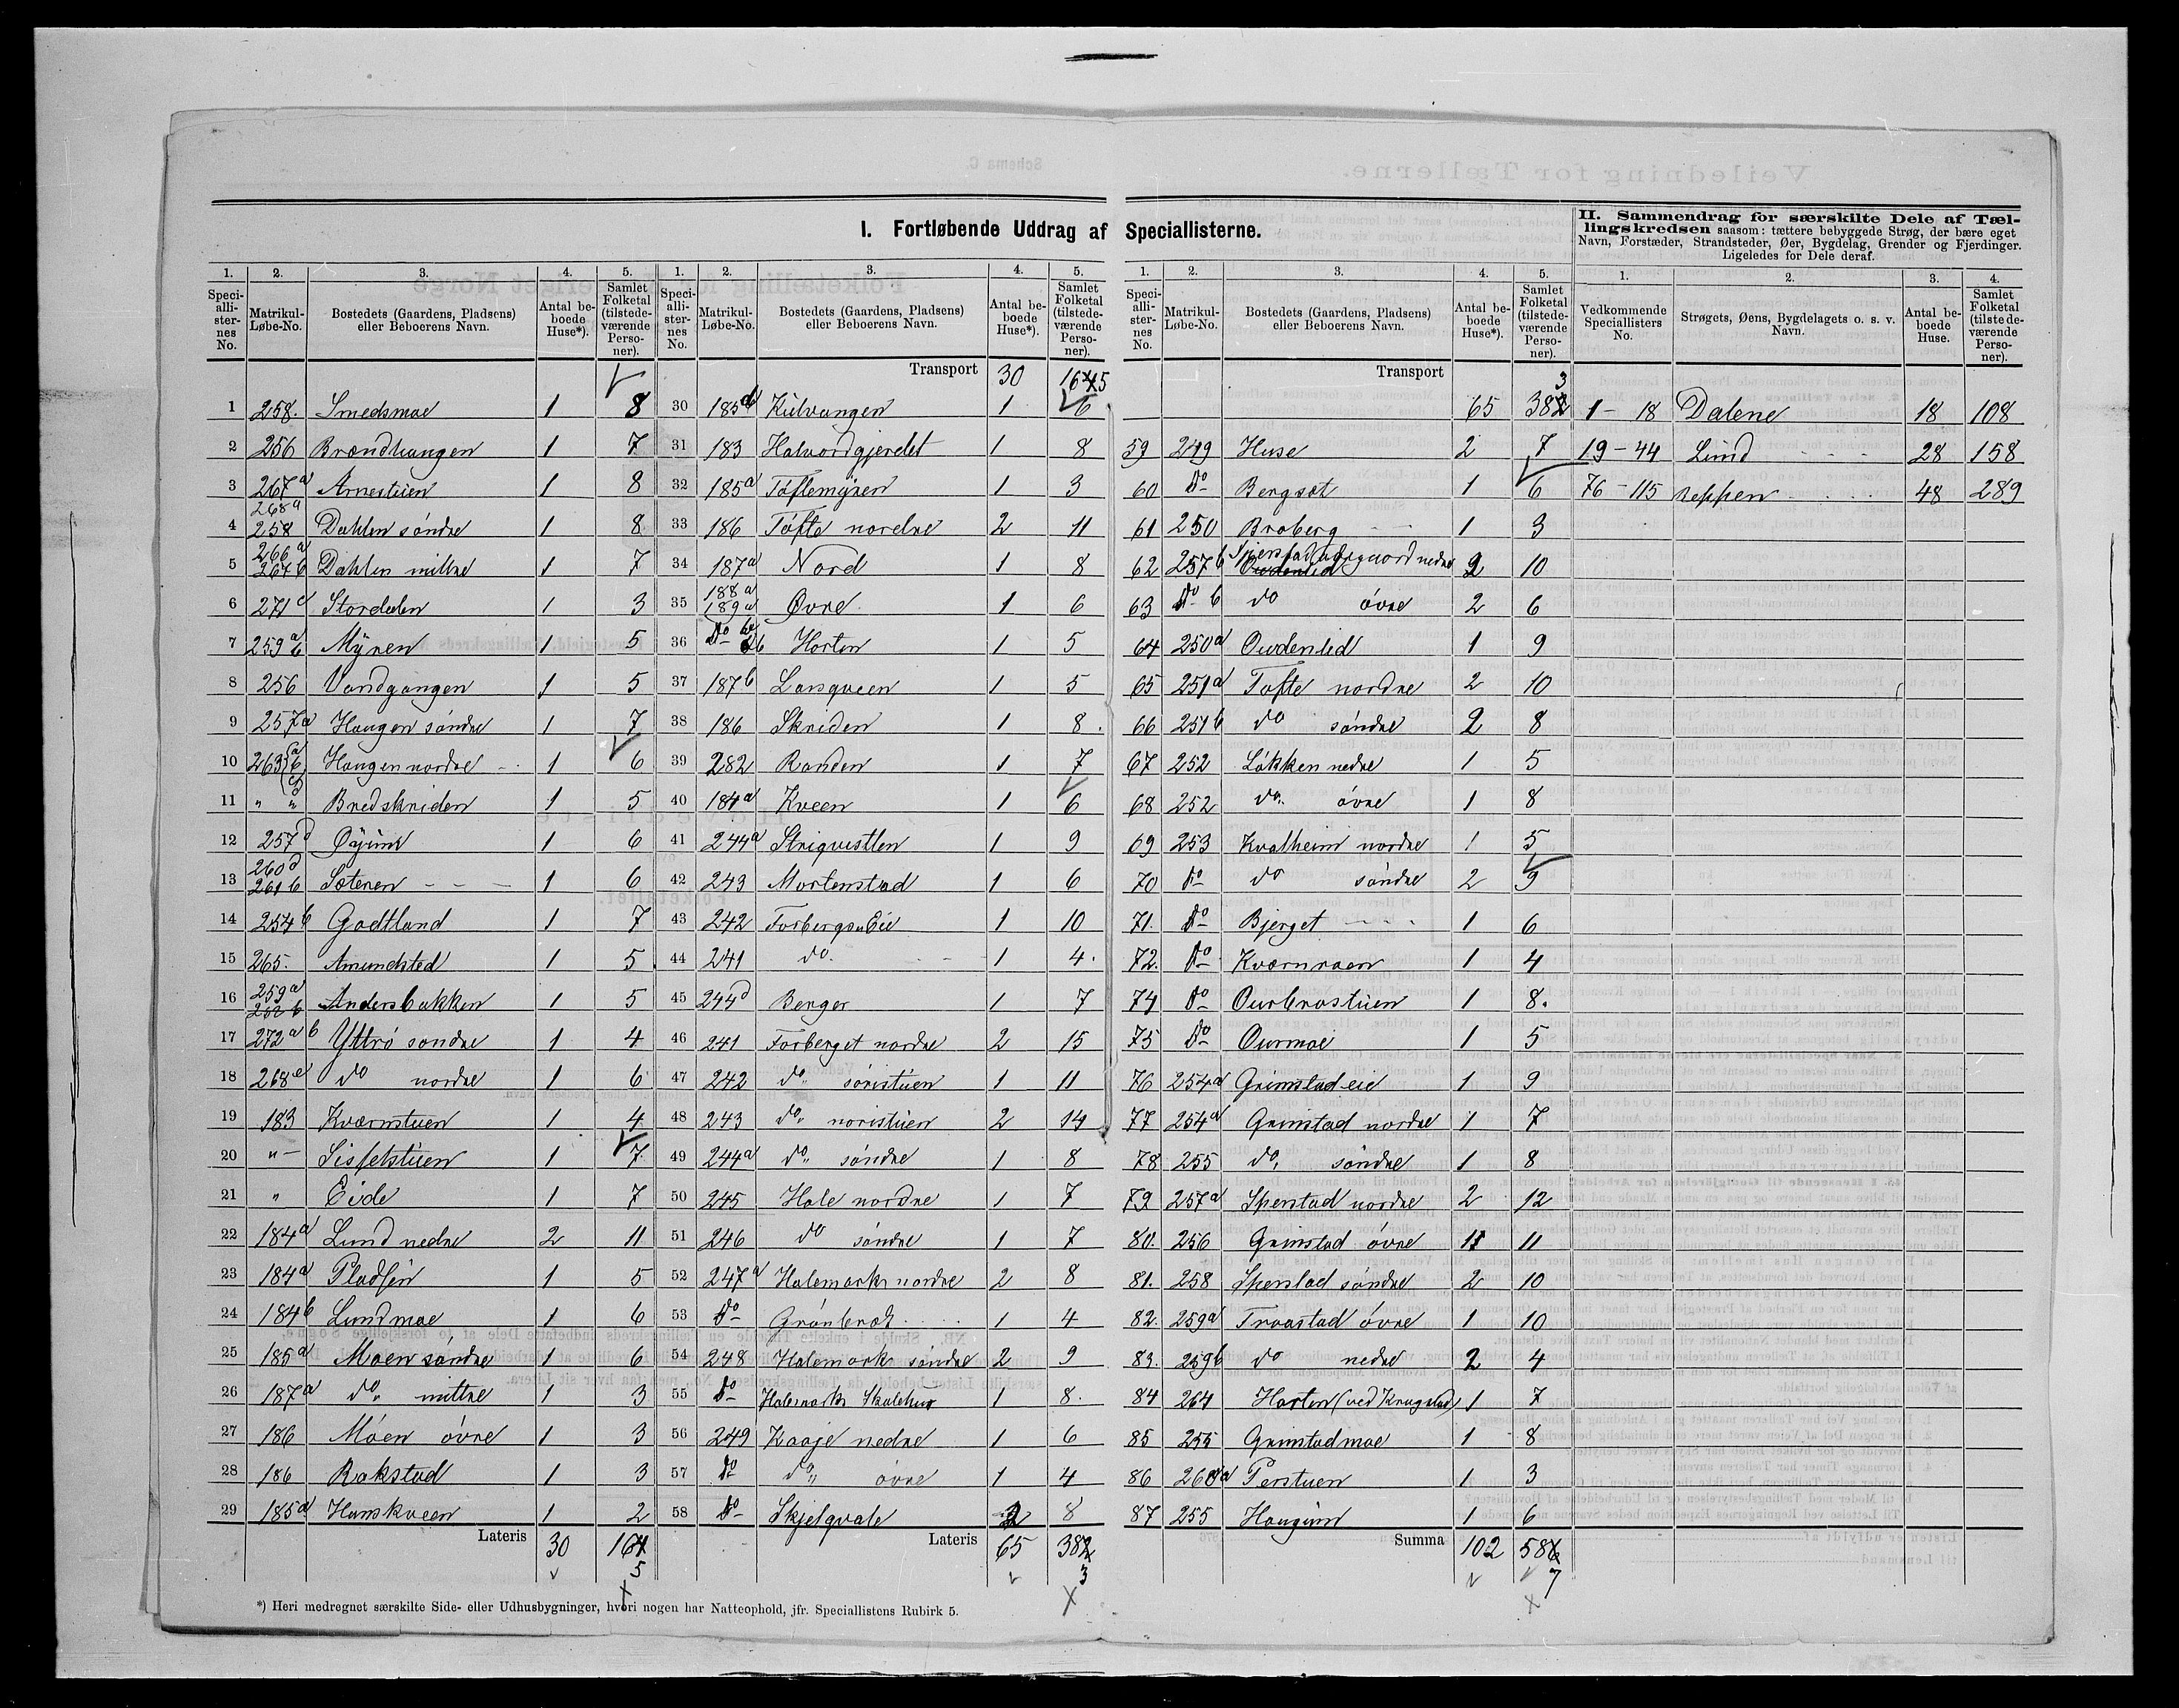 I. Fortløbende Uddrag af Speciallisterne.
II. Sammendrag for særskilte Dele af Tællingskredsen saasom: tættere bebyggede Strøg, der bære eget
Navn, Forstæder, Strandsteder, Øer, Bygdelag, Grender og Fjerdinger.
Ligeledes for Dele deraf.
1. 2. 3. 4. 5.
Speciallisternes No. Matrikul-Løbe-No. Bostedets (Gaardens, Pladsens) eller Beboerens Navn. Antal beboede Huse*). Samlet Folketal (tilstedeværende Personer).
1 258. Smedsmoe 1 8
2 256 Brændhaugen 1 7
3 267a Arnestuen 1 8
4 268a 258 Dahlen søndre 1 8
5 266a 267b Dahlen mittre 1 7
6 271a Stordalen 1 3
7 259a b Mÿren 1 5
8 256 Vandgangen 1 5
9 257a Haugen søndre 1 7
10 263 a b Haugen nordre 1 6
11 " " Bredskriden 1 5
12 257d Øÿum 1 6
13 260d 261b Sæteren 1 6
14 254b Godtland 1 7
15 265. Amundstad 1 5
16 259a 252b Andersbakken 1 5
17 272a b Yttrø søndre 1 4
18 268a do nordre 1 6
19 183 Kværnstuen 1 4
20 " Sisselstuen 1 7
21 " Eide 1 7
22 184a Lund nedre 2 11
23 184a Pladsen 1 5
24 184b Lundmoe 1 6
25 185a Moen søndre 1 6
26 187a do" mittre 1 3
27 186 Moen øvre 1 3
28 186 Rakstad 1 3
29 185a Hanskveen 1 2
Lateris 30 164 5
1. 2. 3. 4. 5.
Speciallisternes No. Matrikul-Løbe-No. Bostedets (Gaardens, Pladsens) eller Beboerens Navn. Antal beboede Huse*). Samlet Folketal (tilstedeværende Personer).
Transport 30 164 5
30 185b Kulvangen 1 6
31 183 Halvordgjerdet 1 8
32 185a Tøftemÿren 1 3
33 186 Tøfte nordre 2 11
34 187a Nord 1 8
35 188a 189a Øvre 1 6
36 do b Horten 1 5
37 187b Larsqveen 1 5
38 186 Skriden 1 8
39 282 Randen 1 7
40 184a Kveen 1 6
41 244a Striqvistlen 1 9
42 243 Mortenstad 1 6
43 242 Forbergseie 1 10
44 241 do. 1 4
45 244d Berger 1 7
46 241 Forberget nordre 2 15
47 242 do" søristuen 1 11
48 243 do" noristuen 2 14
49 244a do" søndre 1 8
50 245 Hole nordre 1 7
51 246 do søndre 1 7
52 247a Holemark nordre 2 8
53 do Grønbrøt 1 4
54 248 Holemark søndre 2 9
55 do Holemark Skolehus 1 8
56 249 Kaaje nedre 1 6
57 do do" øvre 1 4
58 do Skjelqvale 2 8
Lateris 65 382 3
1. 2. 3. 4. 5.
Speciallisternes No. Matrikul-Løbe-No. Bostedets (Gaardens, Pladsens) eller Beboerens Navn. Antal beboede Huse*). Samlet Folketal (tilstedeværende Personer).
Transport
65 382 3
59 249 Huse 2 7
60 do Bergsæt 1 6
61 250 Broberg 1 3
62 257b nedre 2 10
63 do b do øvre 2 6
64 250a Ourdenlid 1 9
65 251a Tofte nordre 2 10
66 251b do søndre 2 8
67 252 Løkken nedre 1 5
68 252 do" øvre 1 8
69 253 Kvalheim nordre 1 5
70 do do søndre 2 9
71. do Bjerget 1 6
72. do Kværnraaen 1 4
74 do Ourbrostuen 1 8.
75 do Ourmoe 1 5
76 254a Grimstadeie 1 9
77 254a Grimstad nordre 1 7
78 255 do, søndre 1 8
79 257a Sperstad nordre 2 12
80. 256 Grimstad øvre 1 11
81. 258 Sperstad søndre 2 10
82. 259a Fraastad øvre 1 10
83. 259b do nedre 2 4
84 264 Horten (ved Krugstad) 1 7
85 255 Grimstadmoe 1 8
86 260a Perstuen 1 3
87 255 Haugum 1 6
Summa 102 586 7
1. 2. 3. 4.
Vedkommende Speciallisters No. Strøgets, Øens, Bygdelagets o. s. v. Navn. Antal beboede Huse. Samlet Folketal (tilstedeværende Personer).
1 - 18 Dalene 18 108
19 - 44 Lund 28 158
76 - 115 Reppen 48 289
*) Heri medregnet særskilte Side- eller Udhusbygninger, hvori nogen har Natteophold, jfr. Speciallistens Rubirk 5.